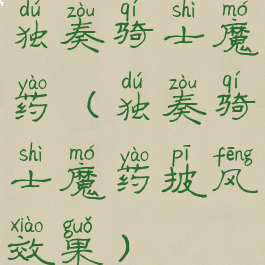 dú zòu qí shì mó
独奏骑士魔
yào dú zòu qí
药(独奏骑
shì mó yào pī fēng
士魔药披风
xiào guǒ
效果)